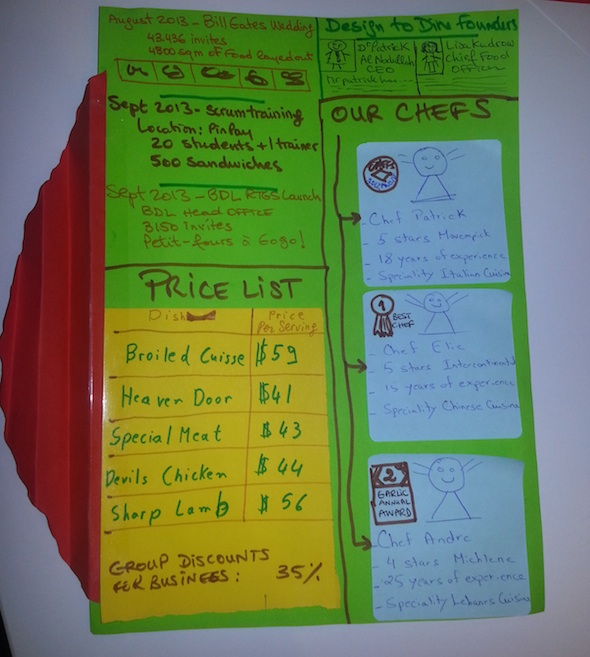 August 2013 - Bill Gates Wedding
43.436 invites
4800 sqm of Food layedout
Sept 2013 - scrum training
Location: PinPay
20 students + 1 trainer
500 sandwiches
Sept 2013 - BDL RTGS Launch
BDL Head OFFICE
3150 invites
Petit-fours à Gogo!
PRICE LIST
Dish
Price
Per Serving
Broiled Cuisse $59
Heaven Door $41
Special Meat $43
Devils Chicken $44
Sharp Lamb $56
GROUP DISCOUNTS
FOR BUSINESS: 35%
Design to Dine founders
Dr Patrick
Al Abdullah
CEO
Lisa Kudrow
Chief Food
Officer
OUR CHEFS
- Chef Patrick
- 5 stars Movenpick
- 18 years of experience
- Speciality Italian Cuisin
1
BEST
CHEF
- Chef Elie
- 5 stars Intercontinental
- 15 years of experience
- Speciality Chinese Cuisine
2
GARLIC
ANNUAL
AWARD
Chef Andre
- 4 stars Michlene
- 25 years of experience
- Speciality Lebanes Cuisine